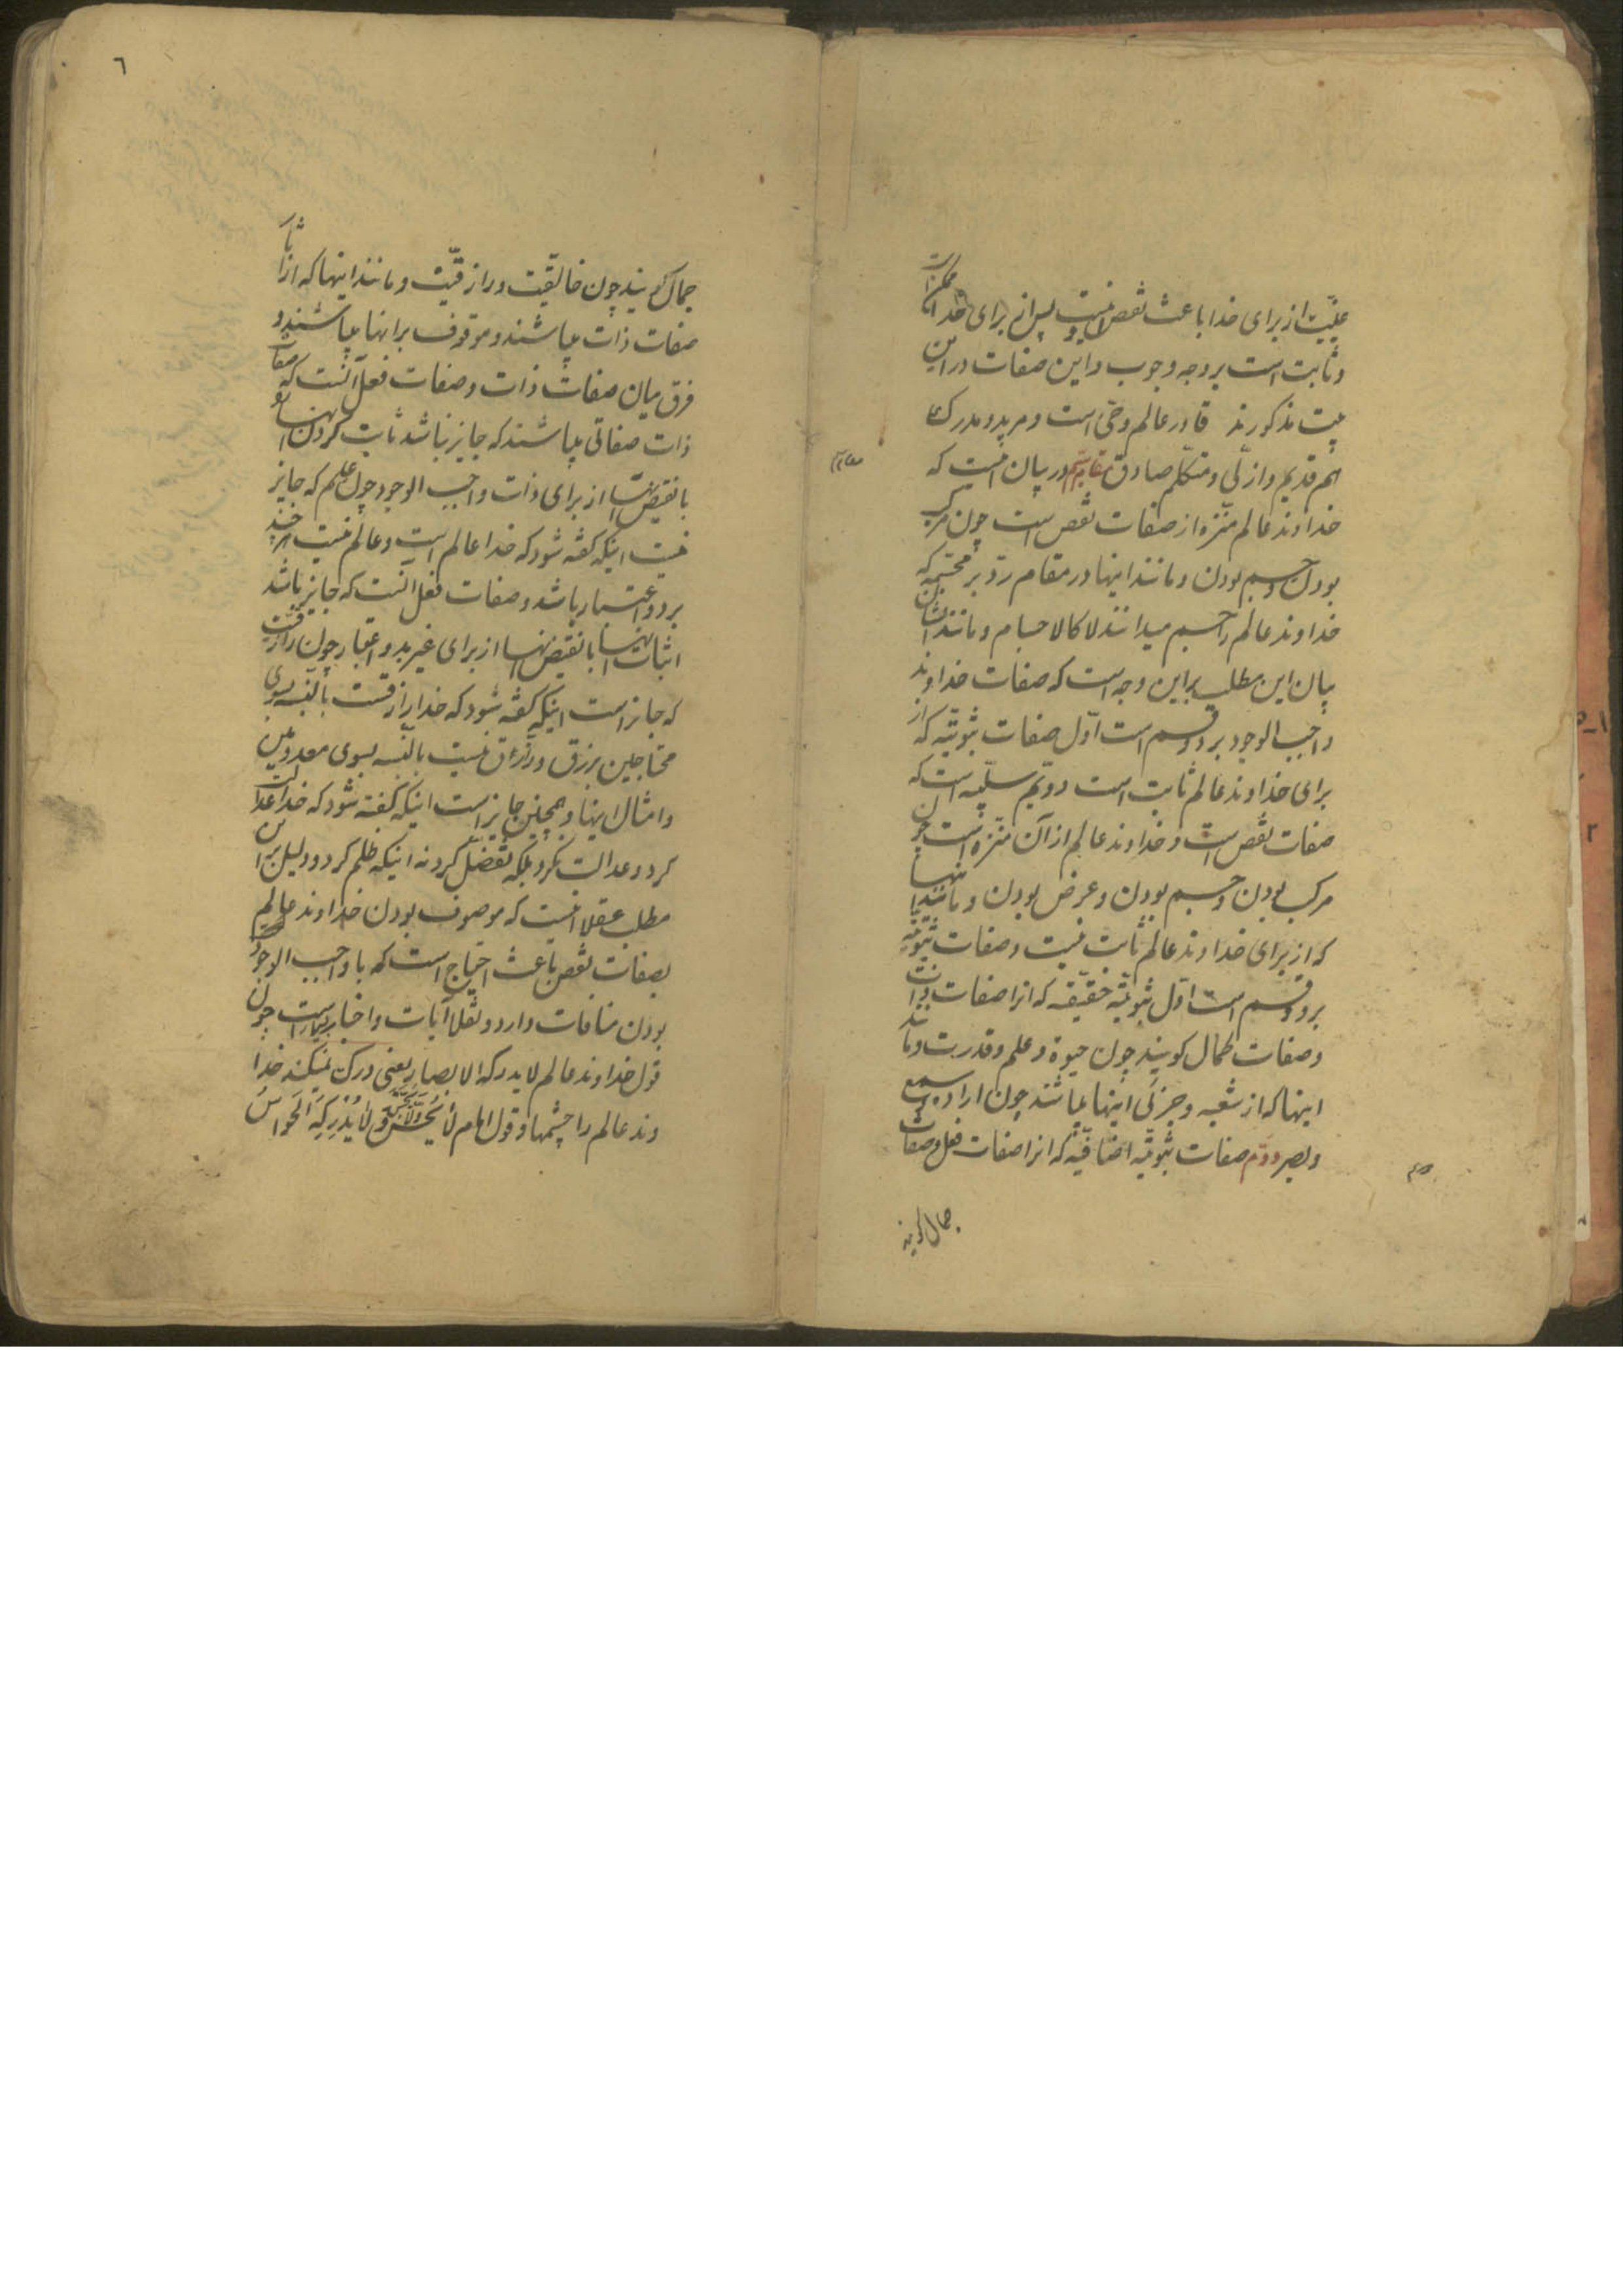 علمیت از برای خدا باعث نقص نیست پس از برای خدا ممکن است
و ثابت است بر وجه وجوب و این صفات در این
بیت مذکورند قادر عالم و حی است و مرید و مدرک
هم قدیم و ازلی و متکلم صادق مقام سیم در بیان اینست که
خداوند عالم منزه از صفات نقص است چون مرکب
بودن و جسم بودن و مانند اینها در مقام رد بر مجسمه که
خداوند عالم را جسم میدانند لا کالاجسام و مانند ایشان
بیان این مطلب بر این وجه است که صفات خداوند
واجب الوجود بر دو قسم است اول صفات ثبوتیه که از
برای خداوند عالم ثابت است دویم سلبیه است که
صفات نقص است و خداوند عالم از آن منزه است چون
مرکب بودن و جسم بودن و عرض بودن و مانند اینها
که از برای خداوند عالم ثابت نیست و صفات ثبوتیه
بر دو قسم است اول ثبوتیه حقیقیه که انرا صفات ذات
و صفات کمال کویند چون حیوة و علم و قدرت و مانند
اینها که از شعبه و جزئی اینها میباشند چون اراده و سمع
و بصر دوم صفات ثبوتیه اضافیه که انرا صفات فعل و صفات
جمال کویند
٦
جمال کویند چون خالقیت و رازقیت و مانند اینها که از اثار
صفات ذات میباشند و موقوف بر انها میباشند و
فرق میان صفات ذات و صفات فعل آنست که صفات
ذات صفاتی میباشند که جایز نباشد ثابت کردن انها
با نقیض انها از برای ذات واجب الوجود چون علم که جایز
نیست اینکه کفته شود که خدا عالم است و عالم نیست هر چند
بر دو اعتبار باشد و صفات فعل آنست که جایز باشد
اثبات انها با نقیض انها از برای غیر بدو اعتبار چون رازقیت
که جایز است اینکه کفته شود که خدا رازقست بالنسبه بسوی
محتاجین برزق و رازق نیست بالنسبه بسوی معدومین
و امثال اینها و همچنین جایز است اینکه کفته شود که خدا عدالت
کرد و عدالت نکرد بلکه تفضل کرد نه اینکه ظلم کرد و دلیل بر این
مطلب عقلا اینست که موصوف بودن خداوند عالم
بصفات نقص باعث احتیاج است که با واجب الوجود
بودن منافات دارد و نقلا آیات و اخبار بسیار است چون
قول خداوند عالم لا یدرکه الابصار یعنی درک نمیکند خدا
وند عالم را چشمها و قول امام لَا یُحَسُّ وَلَا یُجَسُّ وَ لَا یُدْرِکُهُ الْحَوَاسُّ